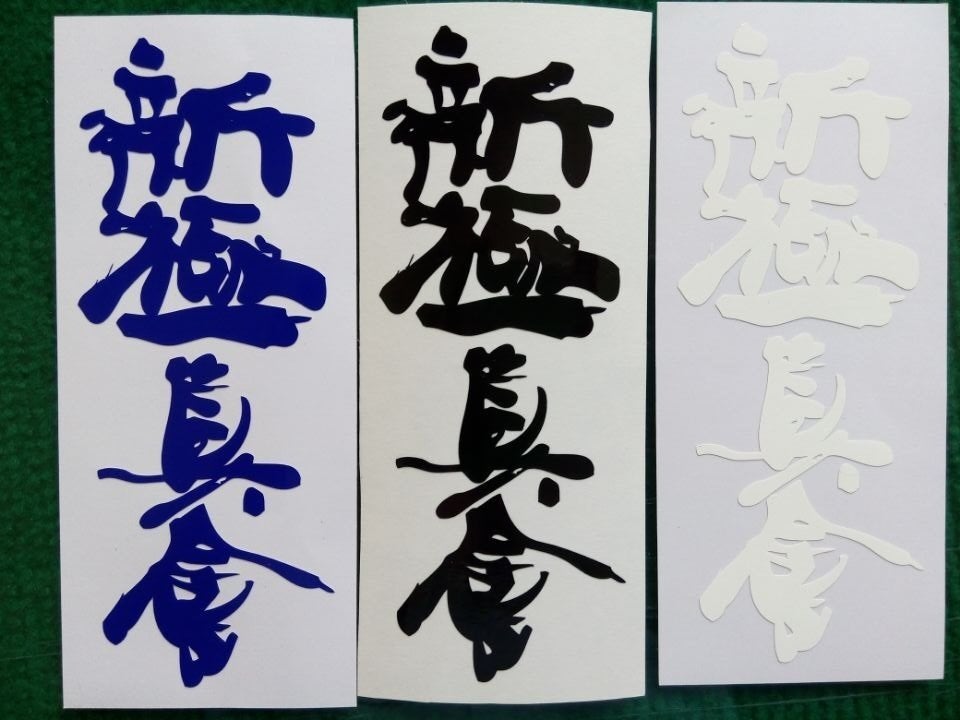 新極真會
新極真會
新極真會